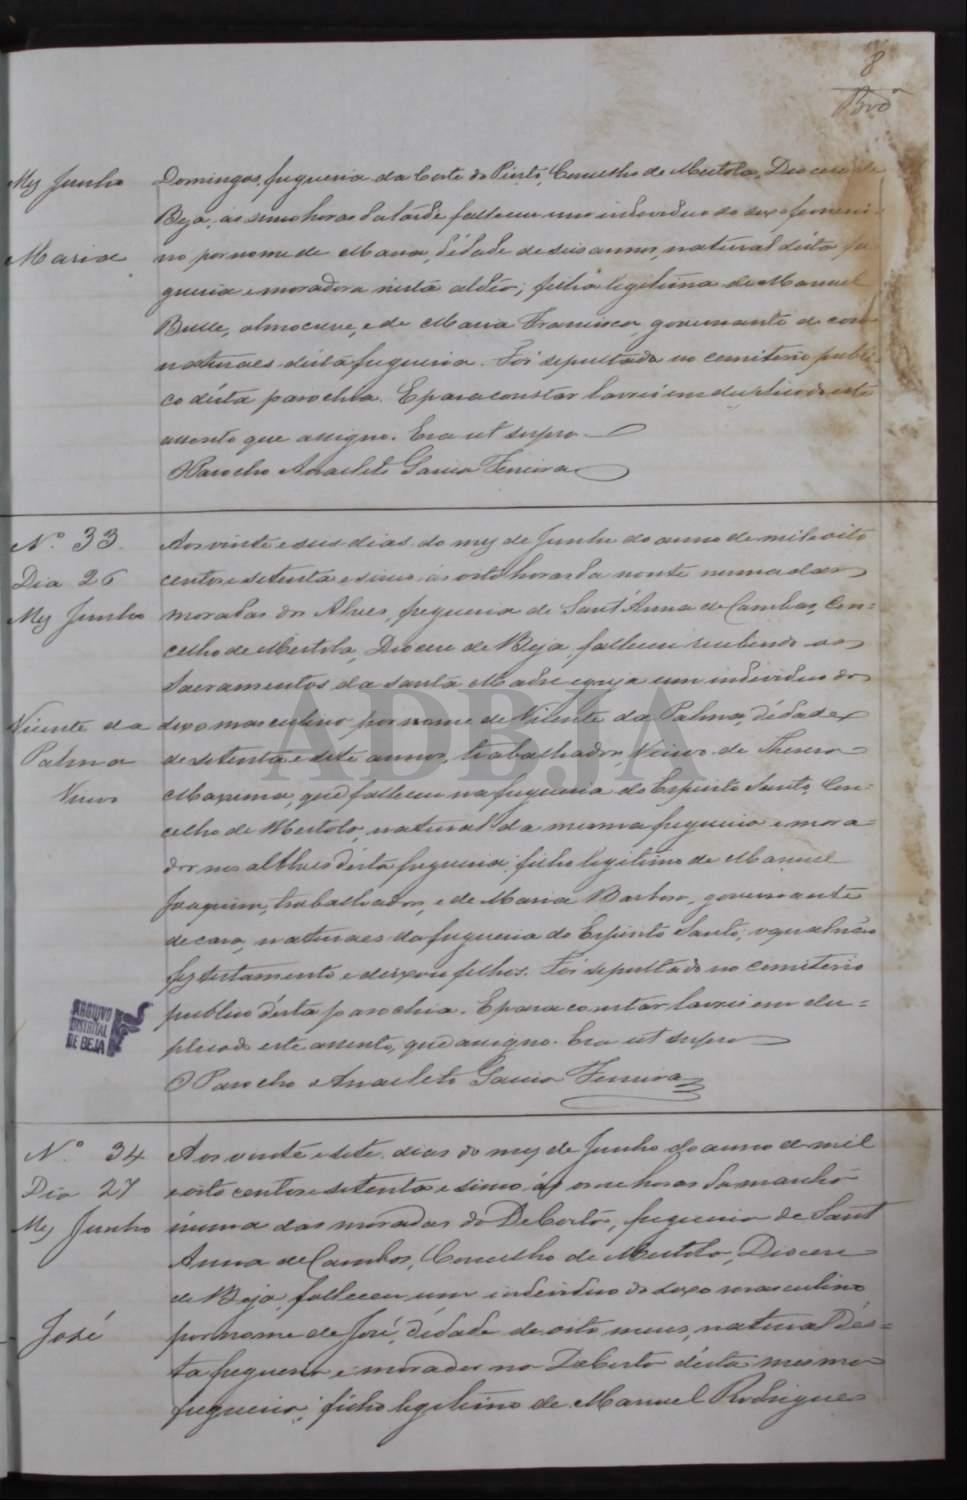 8
Mez Junho
Domingos, freguesia da Corte do Pinto, Concelho de Mertola, Diocese de
Beja, ás horas da tarde falleceu um individuo do sexo femeni-
Maria
no por nome de Maria, d'edade de seis annos, natural d'esta fre-
guesia e moradora n'esta aldêa; filha legitima de Manuel
almocreve, e de Maria Francisca, governante de casa
naturaes d'esta freguesia. Foi sepultada no cemiterio publi-
co d'esta parochia. E para constar lavrei em duplicado este
assento que assigno. Era ut supra
O Parocho Anacleto Garcia Ferreira
Nº 33
Aos vinte e seis dias do mez de Junho do anno de mil e oito
Dia 26
centos e setenta e sinco ás oito horas da noute numa das
Mez Junho
moradas dos Alves, freguesia de Sant'Anna de Cambas, Con-
celho de Mertola, Diocese de Beja, falleceu recebendo os
Sacramentos da Santa Madre egreja um individuo do
Vicente da
sexo masculino por nome de Vicente da Palma, d'edade
Palma
de setenta e sete annos, trabalhador, Viuvo de Thereza
Viuvo
Maxima, que falleceu na freguesia do Espirito Santo, Con-
celho de Mertola, natural da mesma freguesia e mora-
dor nos Alves d'esta freguesia; filho legitimo de Manuel
Joaquim, trabalhador, e de Maria Barbosa, governante
de casa, naturaes da freguesia do Espirito Santo; o qual não
fez testamento e deixou filhos. Foi sepultado no cemiterio
publico d'esta parochia. E para constar lavrei em du-
plicado este assento, que assigno. Era ut supra
O Parocho Anacleto Garcia Ferreira
ARQUIVO
DISTRITAL
DE BEJA
ADBJA
Nº 34
Aos vinte e sete dias do mez de Junho do anno de mil
Dia 27
e oito centos e setenta e sinco ás onze horas da manhã
Mez Junho
n'uma das moradas do freguesia de Sant
Anna de Cambas, Concelho de Mertola, Diocese
de Beja, falleceu um individuo do sexo masculino
José
por nome de José, d'edade de oito mezes, natural d'es-
ta freguesia e morador no d'esta mesma
freguesia; filho legitimo de Manuel Rodrigues